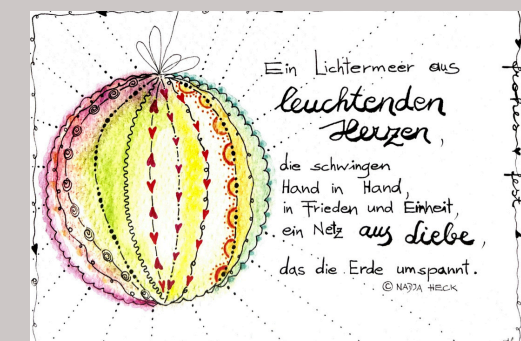 Ein Lichtermeer aus
leuchtenden
Herzen,
die schwingen
Hand in Hand,
in Frieden und Einheit,
ein Netz aus Liebe,
das die Erde umspannt.
© NADJA HECK
frohes
fest